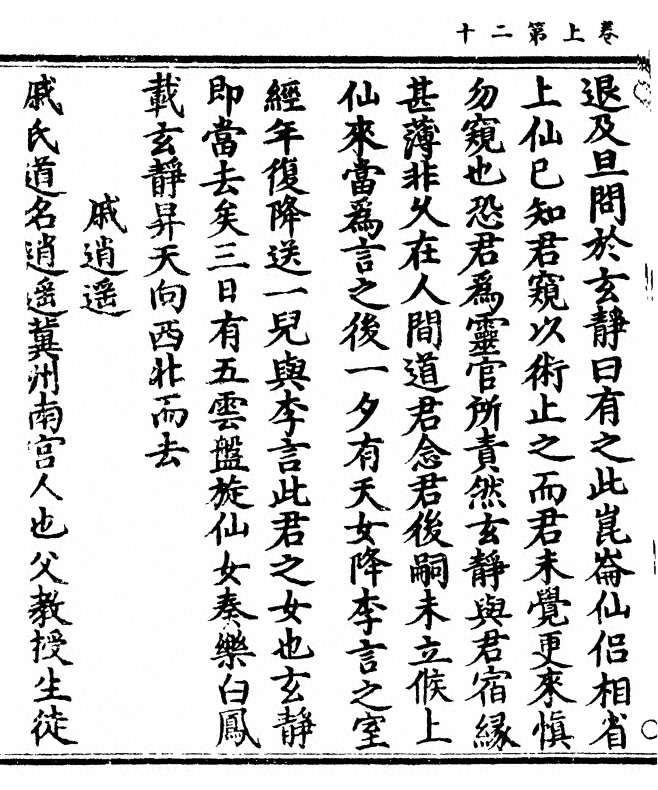 卷上第二十
退及旦問於玄靜曰有之此崑崙仙侶相省
上仙已知君窺以術止之而君未覺更來慎
勿窺也恐君爲靈官所責然玄靜與君宿緣
甚薄非久在人間道君念君後嗣未立候上
仙來當爲言之後一夕有天女降李言之室
經年復降送一兒與李言此君之女也玄靜
即當去矣三日有五雲盤旋仙女奏樂白鳳
載玄靜昇天向西北而去
戚逍遥
戚氏道名逍遥冀州南宫人也父教授生徒